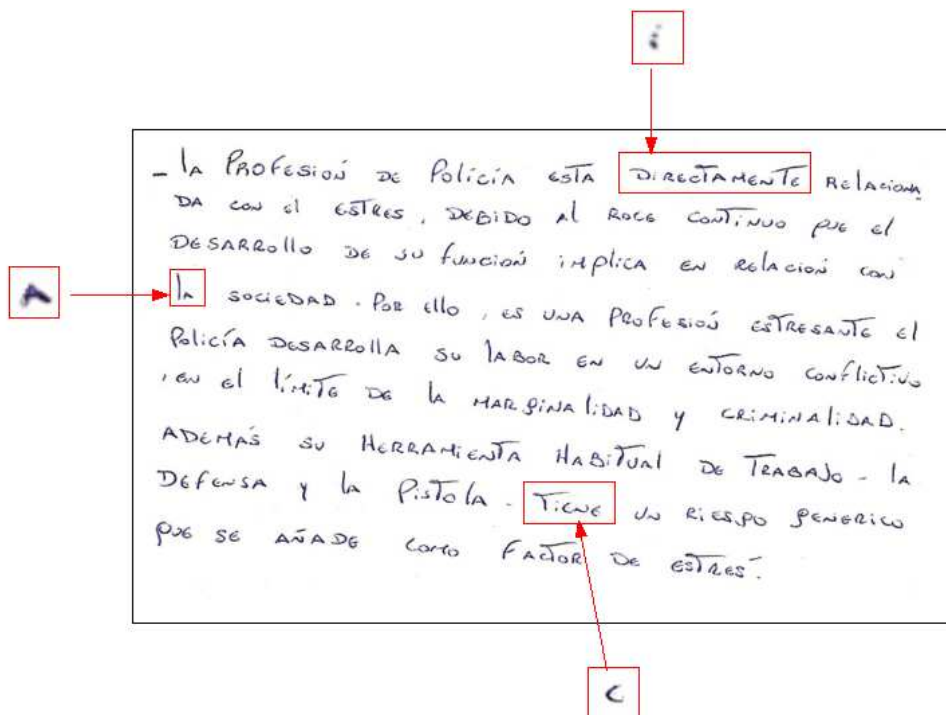 i
- lA PROFESIÓN DE POlICÍA ESTA DIRECTAMENTE RELACIONA
DA CON El ESTRES, DEBIDO Al ROCE CONTINUO QUE El
DESARROllO DE SU FUNCION IMPlICA EN RELACION CON
A lA SOCIEDAD. POR EllO, ES UNA PROFESIÓN ESTRESANTE El
POlICÍA DESARROLLA SU LABOR EN UN ENTORNO CONFlICTIVO
, EN El lÍMITE DE lA MARGINAlIDAD Y CRIMINAlIDAD.
ADEMÁS SU HERRAMIENTA HABITUAl DE TRABAJO - lA
DEFENSA Y lA PISTOlA. TIENE UN RIESGO GENERICO
QUE SE AÑADE COMO FACTOR DE ESTRÉS.
C